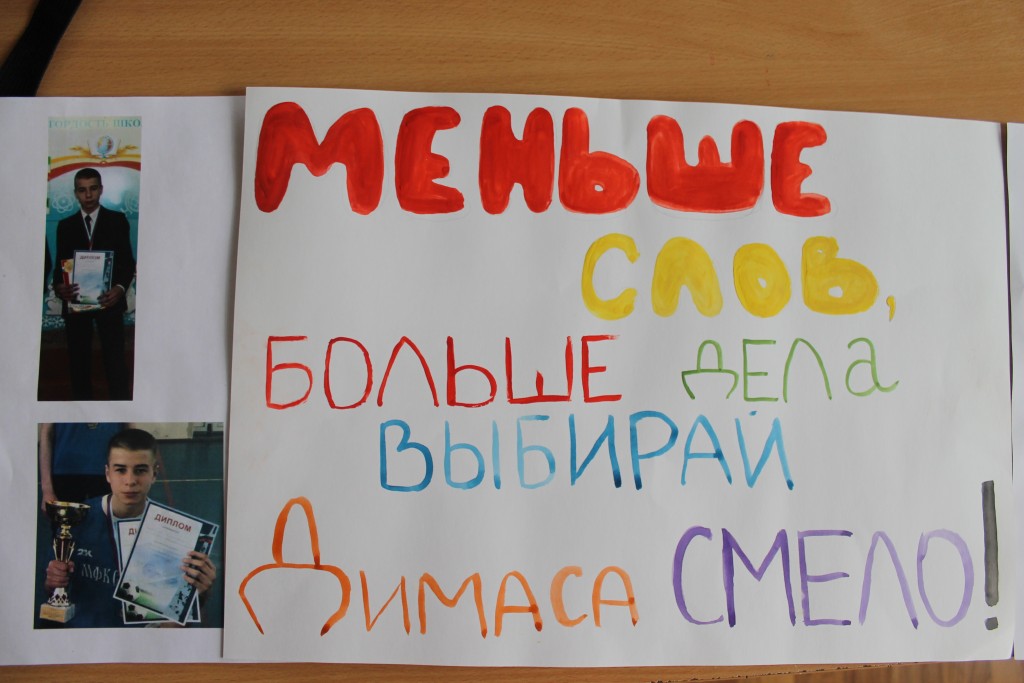 ГОРДОСТЬ ШКО
ДИПЛОМ
ДИПЛОМ
МФК
МЕНЬШЕ
СЛОВ,
БОЛЬШЕ ДЕЛа
ВЫБИРАЙ
ДИМАСА СМЕЛО!